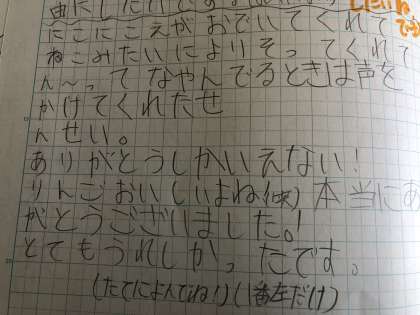 にこにこえがおでいてくれて
ねこみたいによりそってくれて
ん〜ってなやんでるときは声を
かけてくれたせ
んせい。
ありがとうしかいえない!
りんごおいしいよね(笑)本当にあ
がとうございました。!
とてもうれしかったです。
(たてによんでね!)(1番左だけ)